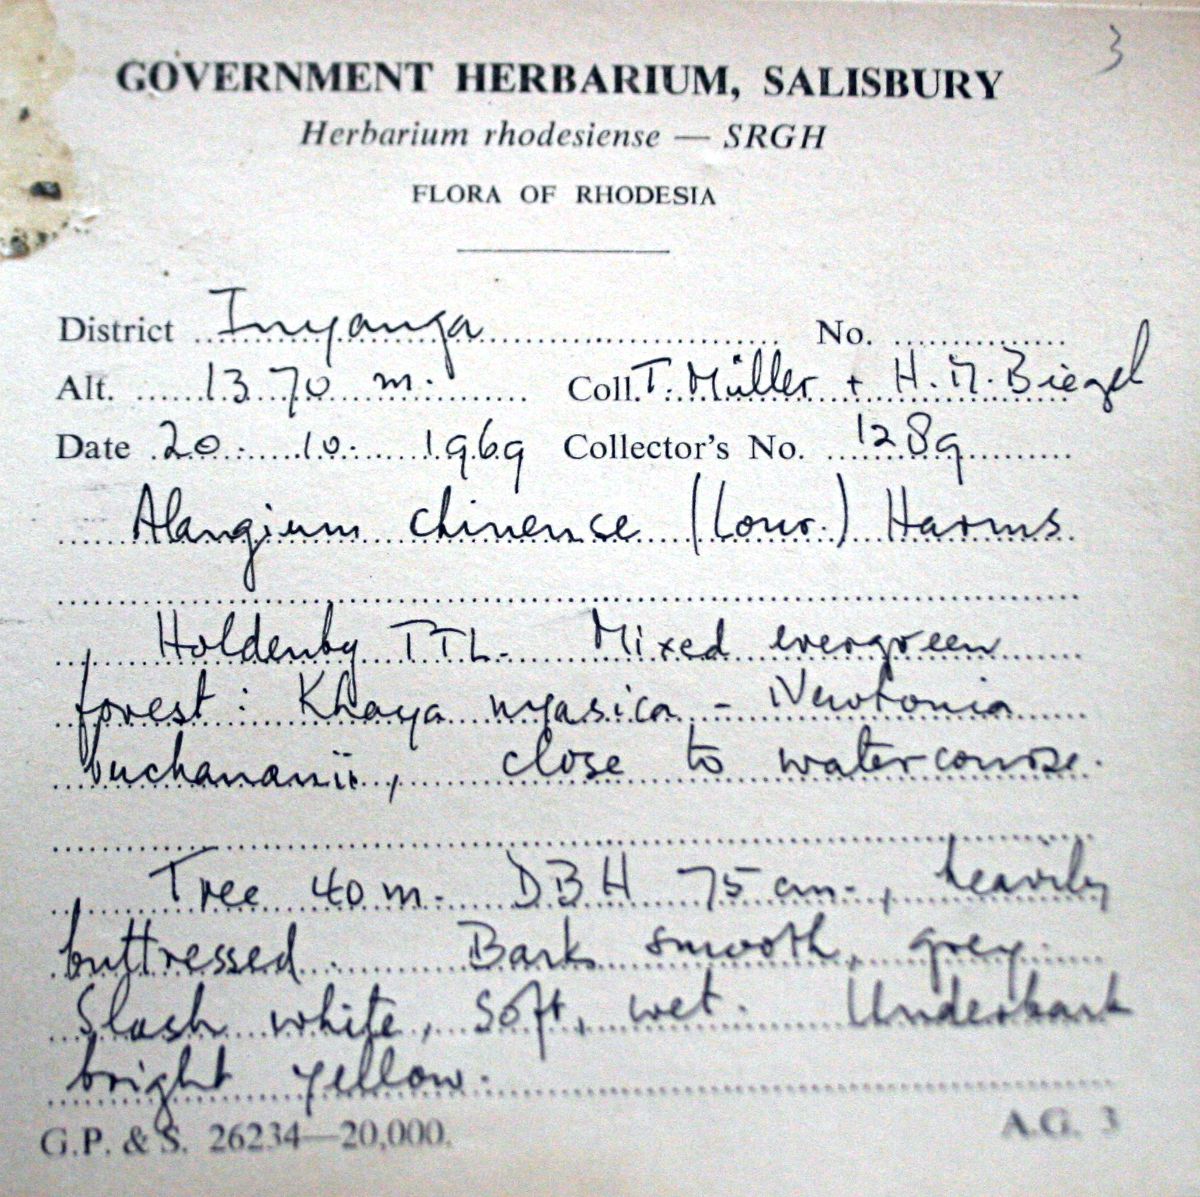 3
GOVERNMENT HERBARIUM, SALISBURY
Herbarium rhodesiense — SRGH
FLORA OF RHODESIA
District Inyanga No.
Alt. 1370 m. Coll. T. Müller + H.M. Biegel
Date 20. 10. 1969 Collector's No. 1289
Alangium chinense (Lour.) Harms
Holdenby TTL. Mixed evergreen
forest: Khaya nyasica - Newtonia
buchananii, close to watercourse.
Tree 40 m. DBH 75 cm., heavily
buttressed. Bark smooth, grey.
Slash white, soft, wet. Underbark
bright yellow.
G.P. & S. 26234—20,000. A.G. 3